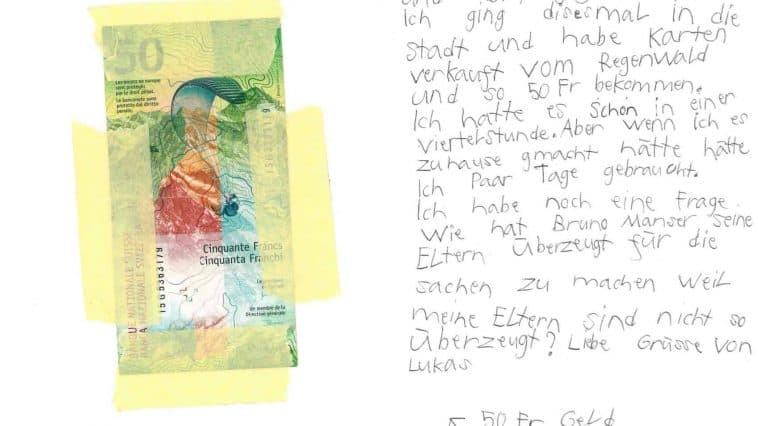 50
Les billets de banque
sont protégés
par le droit pénal.
Le banconote sono
protette dal diritto
penale.
Cinquante Francs
Cinquanta Franchi
Un membre de la
Direction générale
BANQUE NATIONALE SUISSE
Ich ging disesmal in die
Stadt und habe Karten
verkauft vom Regenwald
und so 50 Fr bekommen.
Ich hatte es schon in einer
viertelstunde. Aber wenn ich es
zuhause gmacht hätte hätte
Ich Paar Tage gebraucht.
Ich habe noch eine Frage.
Wie hat Bruno Manser seine
Eltern Überzeugt für die
sachen zu machen weil
meine Eltern sind nicht so
Überzeugt? Liebe Grüsse von
Lukas
50 Fr Geld